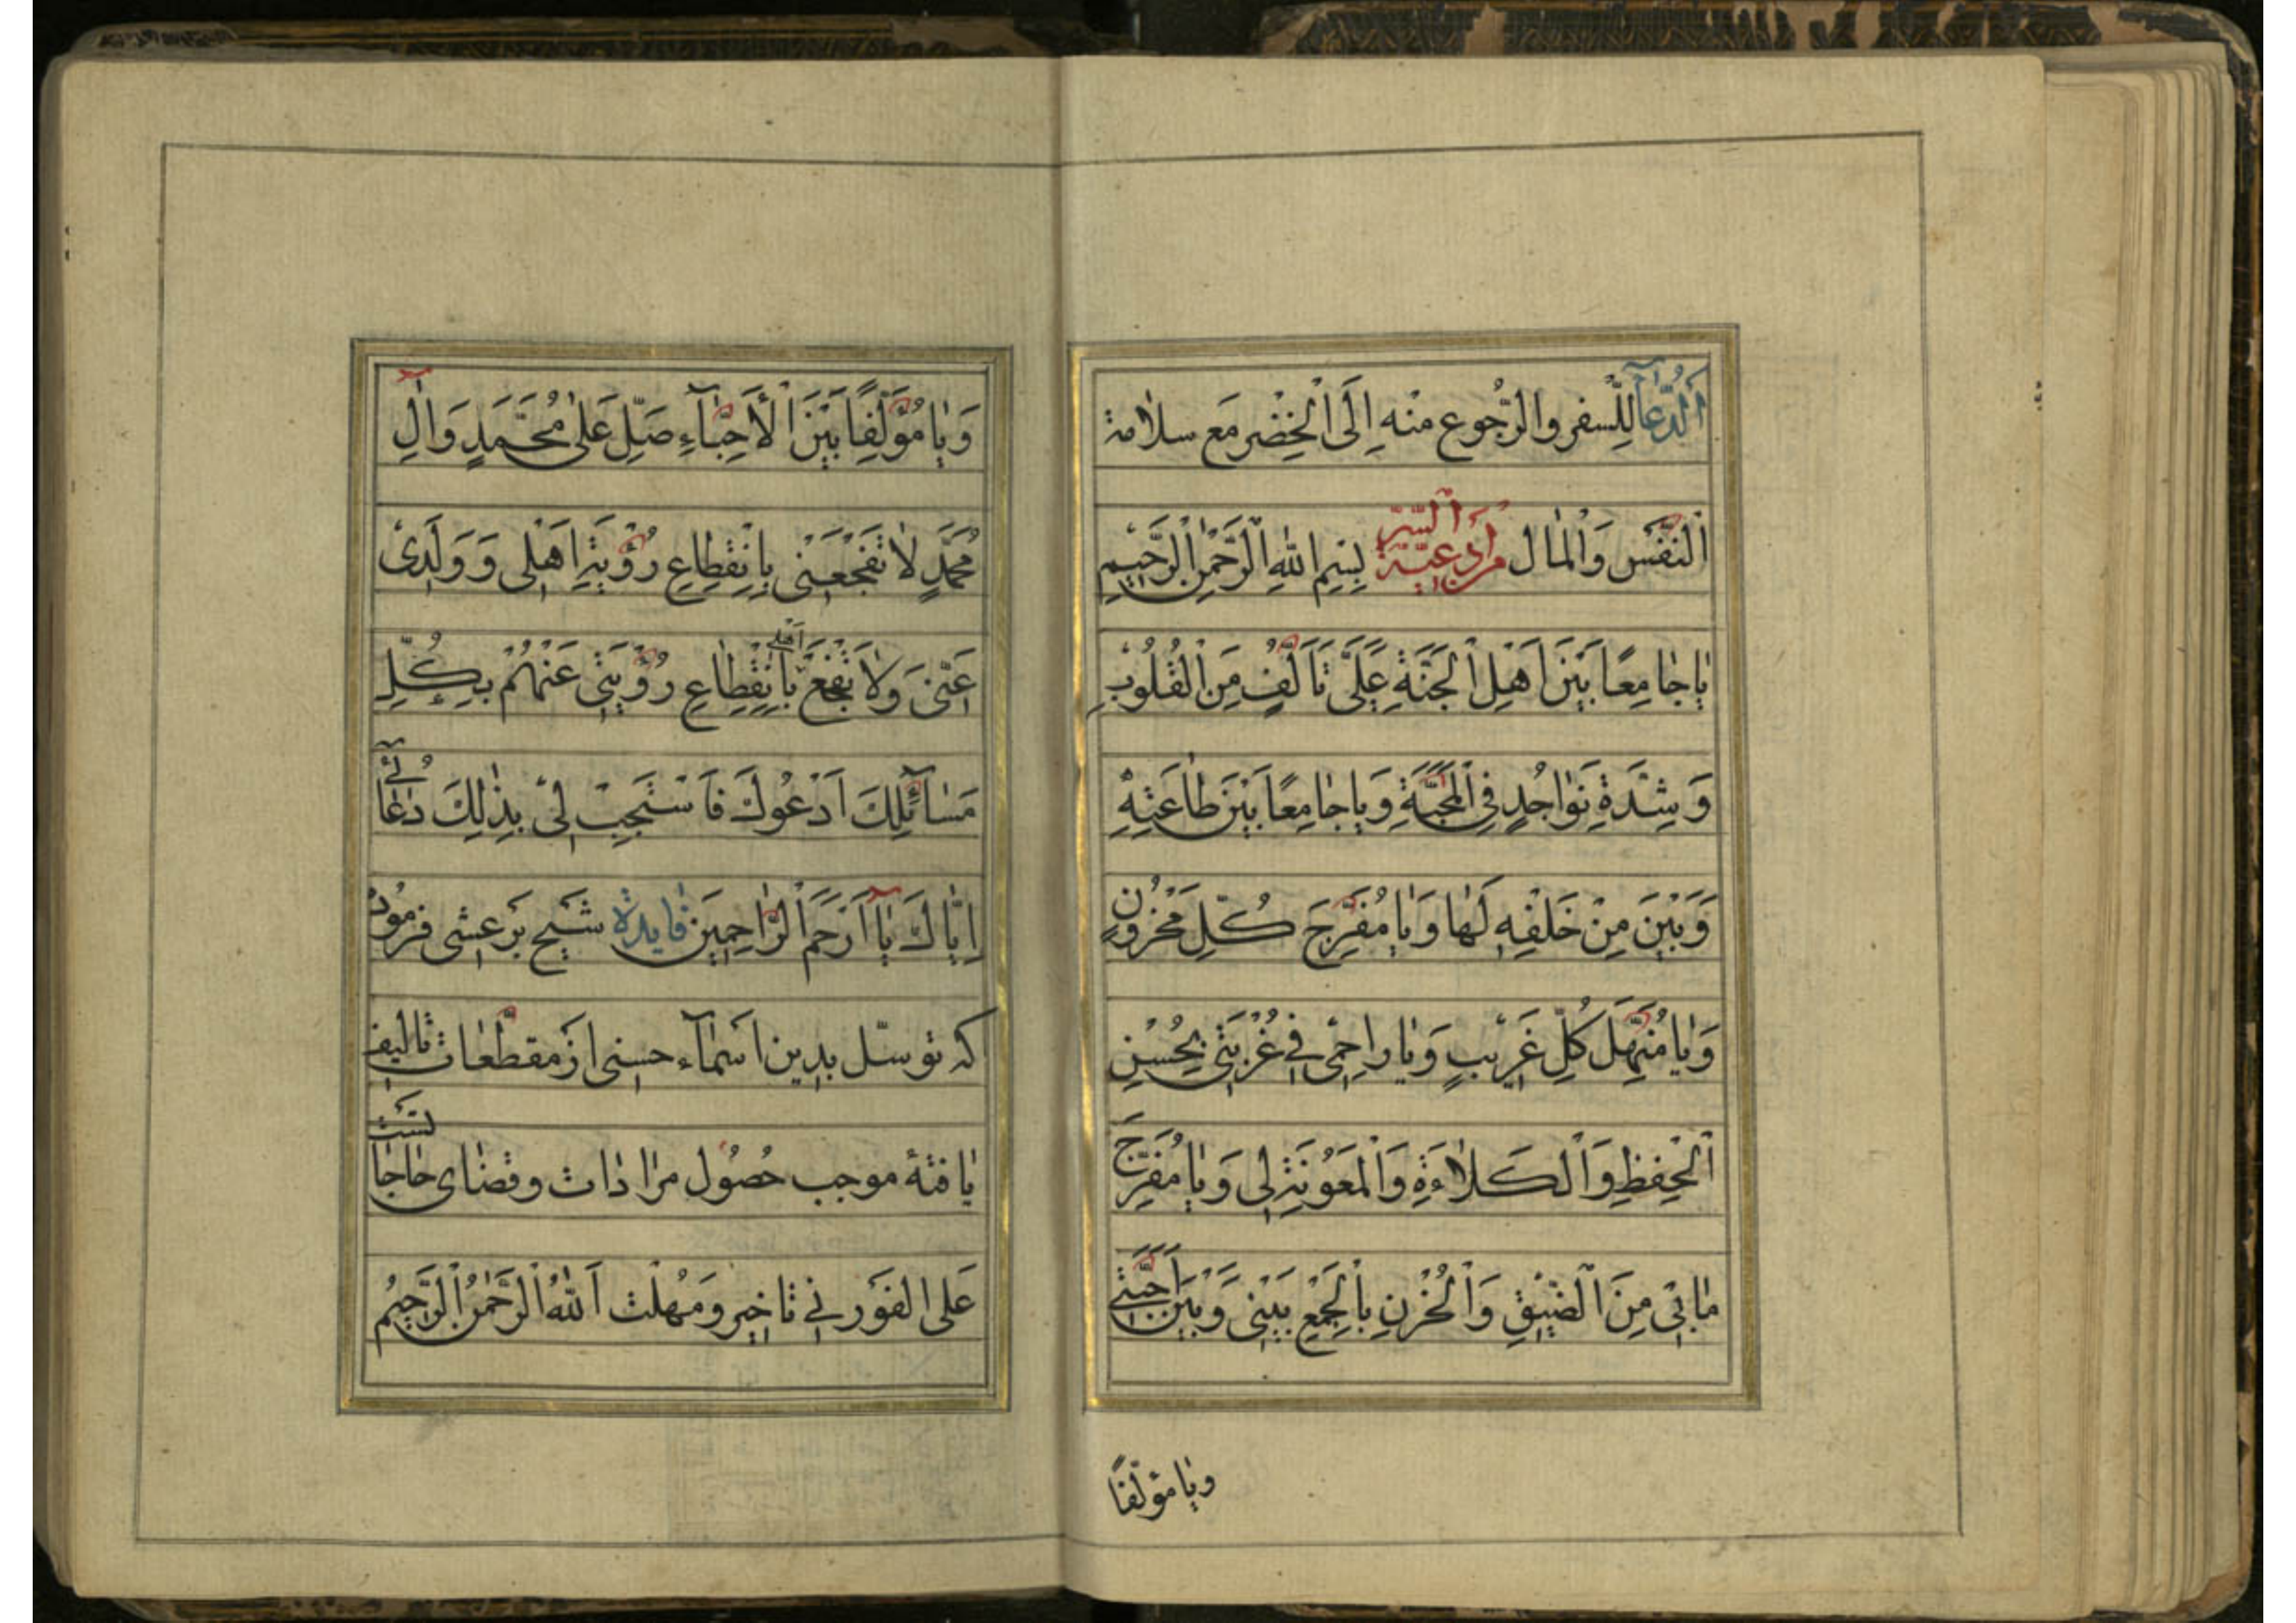 اَلدُّعآُ لِلسفر والرّجوع منه اِلَى اْلحِضْر مَع سلاٰمة
اَلنَّفْس وَالْمٰال مِنْ اَدْعِيَةِ اَلسِّرِّ بِسْمِ اللّٰهِ الرَّحْمٰنِ الرَّحٖيمِ
يٰاجٰامِعًا بَيْنَ اَهْلِ الْجَنَّةِ عَلٰى تَاَلُّفٍ مِنَ الْقُلُوبِ
وَشِدَّةِ تَوٰاجُدٍ فِى الْمَحَبَّةِ وَيٰاجٰامِعًا بَيْنَ طٰاعَتِهِ
وَبَيْنَ مِنْ خَلَقَهِ لَهٰا وَيٰا مُفَرِّجَ كُلِّ مَحْزُونٍ
وَيٰا مُنَهِّلَ كُلِّ غَرٖيبٍ وَيٰا رٰاحِمٖى فٖى غُرْبَتٖى بِحُسْنِ
الْحِفْظِ وَالْكَلاٰءَةِ وَالْمَعُوْنَةِ لٖى وَيٰا مُفَرِّجَ
مٰابٖى مِنَ الضّٖيقِ وَالْحُزْنِ بِالْجَمْعِ بَيْنٖى وَبَيْنَ اَحِبَّتٖى
ويٰا مؤلّفًا
وَيٰا مُؤَلِّفًا بَيْنَ الْأَحِبّٰآءِ صَلِّ عَلٰى مُحَمَّدٍ وَاٰلِ
مُحَمَّدٍ لاٰ تَفْجَعْنٖى بِانْقِطٰاعِ رُؤْيَةِ اَهْلٖى وَوَلَدٖى
عَنّٖى وَلاٰ تَفْجَعْ اَهْلٖى بِانْقِطٰاعِ رُؤْيَتٖى عَنْهُمْ بِكُلِّ
مَسٰآئِلِكَ اَدْعُوكَ فَاسْتَجِبْ لٖى بِذٰلِكَ دُعٰآئٖى
اِيّٰاكَ يٰآ اَرْحَمَ الرّٰاحِمٖينَ فٰايدة شيخ بَرعشى فرمود
كه توسّل بدين اسمآء حسنى از مقطّعات تاليف
يٰافته موجب حُصُول مرٰادٰات و قضٰاى حٰاجٰاتست
عَلى الفور بى تٰاخير و مَهُلت اَللّٰهُ الرَّحْمٰنُ الرَّحٖيمُ